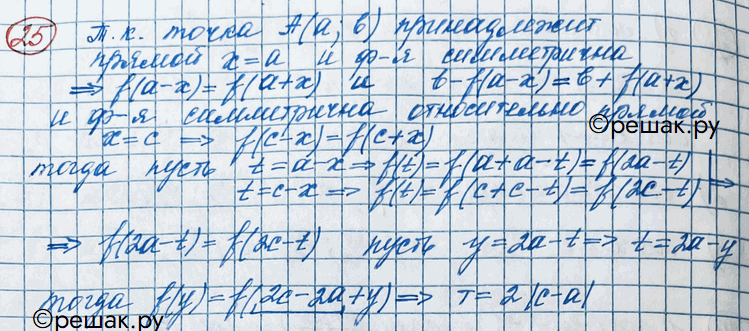 25 Т.к. точка A(a; b) принадлежит
прямой x=a и ф-я симметрична
⇒ f(a-x)=f(a+x) и b-f(a-x)=b+f(a+x)
и ф-я симметрична относительно прямой
©решак.ру
x=c ⇒ f(c-x)=f(c+x)
тогда пусть t=a-x ⇒ f(t)=f(a+a-t)=f(2a-t)
t=c-x ⇒ f(t)=f(c+c-t)=f(2c-t) | ⇒
⇒ f(2a-t)=f(2c-t) пусть y=2a-t ⇒ t=2a-y
тогда f(y)=f(2c-2a+y) ⇒ T=2|c-a|
©решак.ру